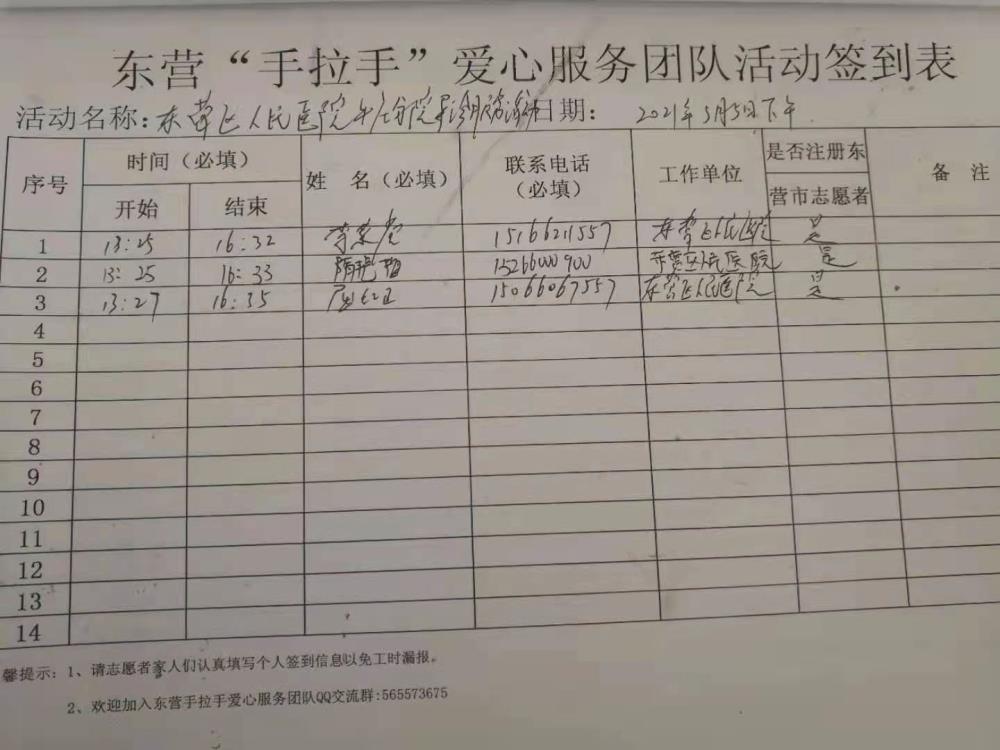 东营“手拉手”爱心服务团队活动签到表
活动名称：东营区人民医院 分院 日期： 2021年5月5日下午
序号 时间（必填） 姓 名（必填） 联系电话（必填） 工作单位 是否注册东营市志愿者 备 注
开始 结束
1 13:25 16:32 15166211557 东营区人民医院 是
2 13:25 16:33 1526600900 东营区人民医院 是
3 13:27 16:35 15066067557 东营区人民医院 是
4
5
6
7
8
9
10
11
12
13
14
馨提示：1、请志愿者家人们认真填写个人签到信息以免工时漏报。
2、欢迎加入东营手拉手爱心服务团队QQ交流群:565573675